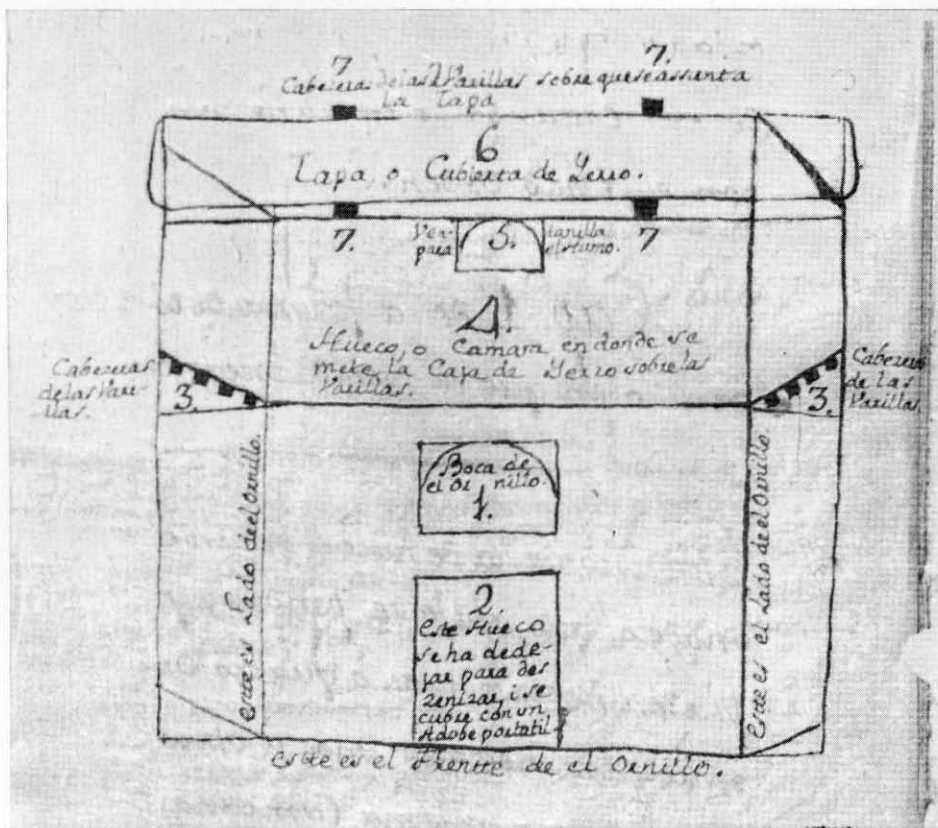 7 7.
Cabezeras de las 2 Varillas sobre que se assienta
La Tapa
6
Tapa, o Cubierta de Yerro.
7. 7
Ven- 5. tanilla
para el Humo.
4.
Hueco, o Camara en donde se
mete, la Caja de Yerro sobre las
Varillas.
Cabezeras
de las Vari-
llas.
3.
Cabezera
de las
Varillas
3.
Boca de
el Or nillo.
1.
2.
este Hueco
se ha de de-
jar para des
zenizar, i se
cubre con un
Adobe portatil
Este es el Lado de el Ornillo.
Este es el Lado de el Ornillo.
Este es el Frentte de el Ornillo.